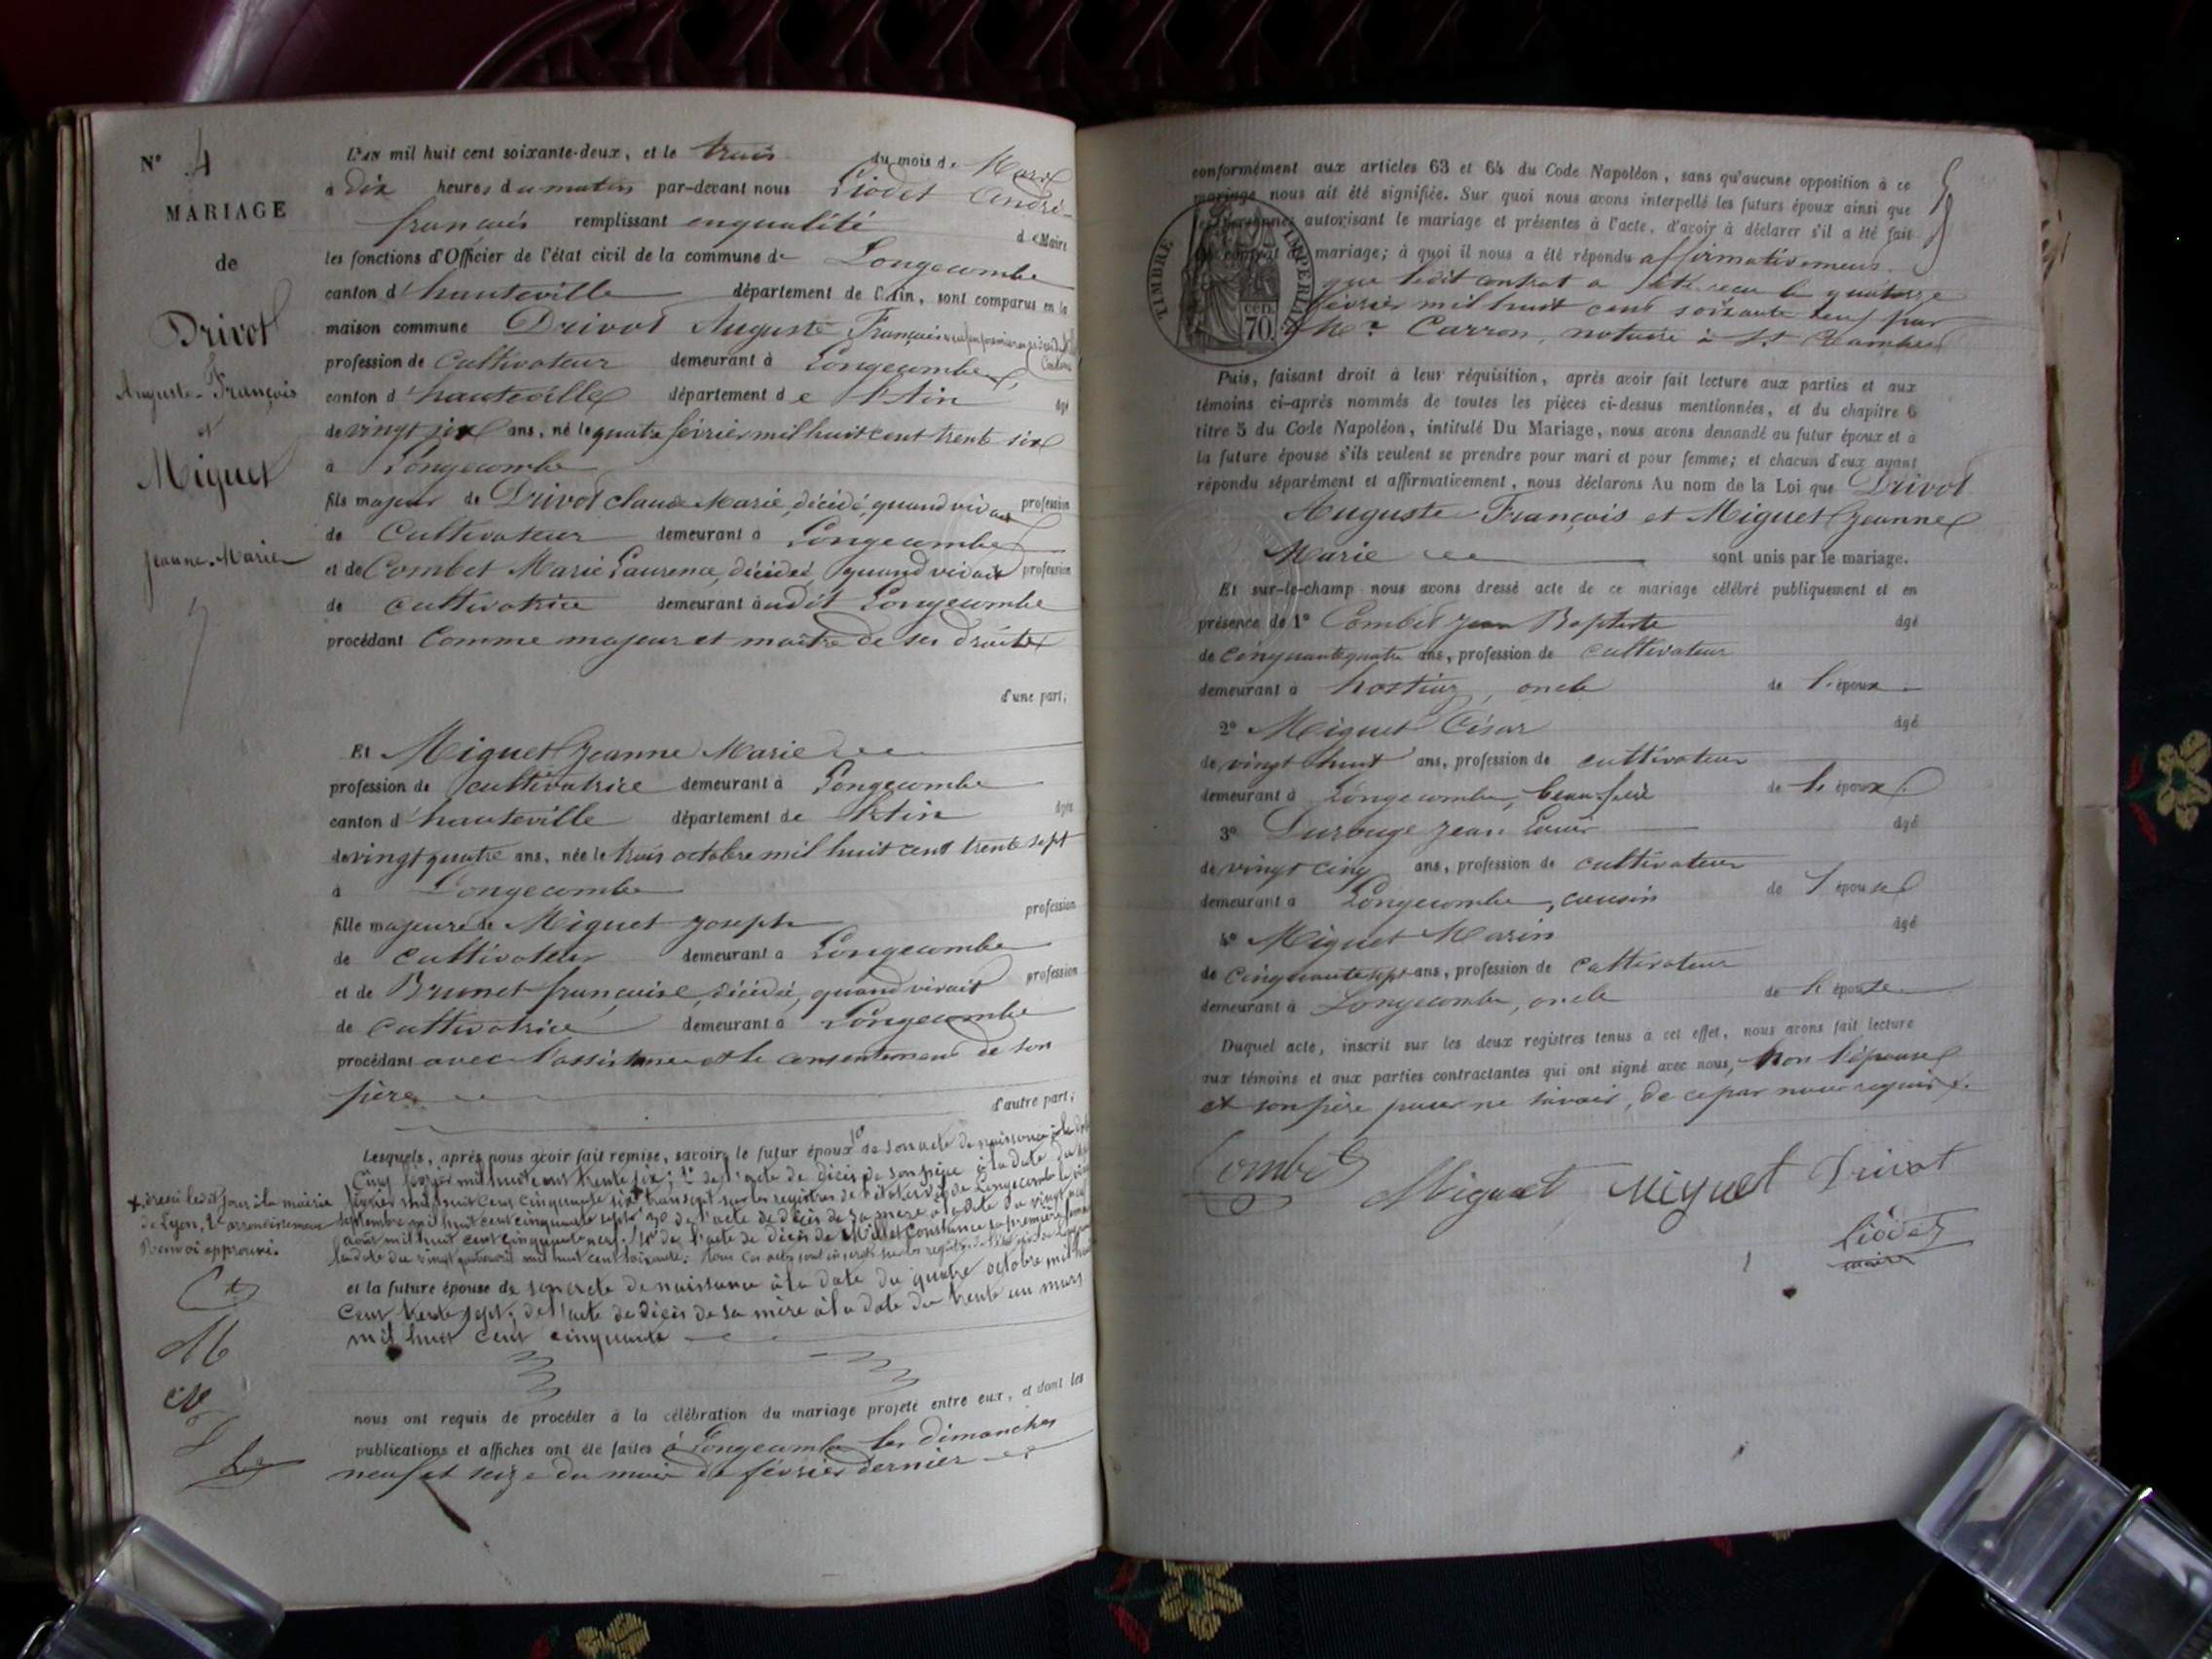 N° 4
MARIAGE
de
Drivot
Auguste-François
et
Miguet
Jeanne-Marie
L'AN mil huit cent soixante-deux, et le trois du mois de Mars
à dix heures du matin par-devant nous Liodet André-
françois remplissant enqualité de Maire
les fonctions d'Officier de l'état civil de la commune de Longecombe
canton d'hauteville département de l'Ain, sont comparus en la
maison commune Drivot Auguste François veuf en premières
profession de Cultivateur demeurant à Longecombe
canton d'hauteville département de l'Ain âgé
de vingt six ans, né le quatre février mil huit cent trente six
à Longecombe
fils majeur de Drivot Claude Marie, décédé, quand vivait profession
de Cultivateur demeurant à Longecombe
et de Combet Marie Laurence, décédée, quand vivait profession
de cultivatrice demeurant audit Longecombe
procédant Comme majeur et maître de ses droits
d'une part;
Et Miguet Jeanne Marie
profession de cultivatrice demeurant à Longecombe
canton d'hauteville département de l'Ain âgée
de vingt quatre ans, née le trois octobre mil huit cent trente sept
à Longecombe
fille majeure de Miguet Joseph profession
de Cultivateur demeurant à Longecombe
et de Brunet françoise, décédée, quand vivait profession
de Cultivatrice demeurant à Longecombe
procédant avec l'assistance et le consentement de son
père
d'autre part;
Lesquels, après nous avoir fait remise, savoir, le futur époux 1° de son acte de naissance à la date
Cinq février mil huit cent trente six; 2° de l'acte de décès de son père à la date du
février mil huit cent cinquante six transcrit sur les registres de l'état civil de Longecombe le
septembre mil huit cent cinquante sept; 3° de l'acte de décès de sa mère à la date du vingt
août mil huit cent cinquante; 4° de l'acte de décès de Millet Constance sa première femme
la date du vingt quatre mil huit cent soixante. tous ces actes sont inscrits sur les registres de l'état civil de
+ dressé ledit jour à la mairie
de Lyon, 2e arrondissement
Renvoi approuvé.
et la future épouse de son acte de naissance à la date du quatre octobre mil huit
Cent trente sept; de l'acte de décès de sa mère à la date du trente un mars
mil huit cent cinquante
nous ont requis de procéder à la célébration du mariage projeté entre eux, et dont les
publications et affiches ont été faites à Longecombe les dimanches
neuf et seize du mois de février dernier
conformément aux articles 63 et 64 du Code Napoléon, sans qu'aucune opposition à ce
mariage nous ait été signifiée. Sur quoi nous avons interpellé les futurs époux ainsi que
les personnes autorisant le mariage et présentes à l'acte, d'avoir à déclarer s'il a été fait
un contrat de mariage; à quoi il nous a été répondu affirmativement
que ledit contrat a été reçu le quatorze
février mil huit cent soixante deux par
Me Carron, notaire à St Rambert
TIMBRE IMPERIAL
70 cen.
Puis, faisant droit à leur réquisition, après avoir fait lecture aux parties et aux
témoins ci-après nommés de toutes les pièces ci-dessus mentionnées, et du chapitre 6
titre 5 du Code Napoléon, intitulé Du Mariage, nous avons demandé au futur époux et à
la future épouse s'ils veulent se prendre pour mari et pour femme; et chacun d'eux ayant
répondu séparément et affirmativement, nous déclarons Au nom de la Loi que Drivot
Auguste François et Miguet Jeanne
Marie sont unis par le mariage.
Et sur-le-champ nous avons dressé acte de ce mariage célébré publiquement et en
présence de 1° Combet Jean Baptiste âgé
de cinquante quatre ans, profession de cultivateur
demeurant à hostiaz, oncle de l'époux
2° Miguet César âgé
de vingt huit ans, profession de cultivateur
demeurant à Longecombe, beau-frère de l'époux
3° Durouge Jean Louis âgé
de vingt cinq ans, profession de cultivateur
demeurant à Longecombe, cousin de l'épouse
4° Miguet Marin âgé
de Cinquante sept ans, profession de Cultivateur
demeurant à Longecombe, oncle de l'épouse
Duquel acte, inscrit sur les deux registres tenus à cet effet, nous avons fait lecture
aux témoins et aux parties contractantes qui ont signé avec nous, non l'épouse
et son père pour ne savoir, de ce par nous requis
Combet
Miguet Miguet Drivot
Liodet
maire